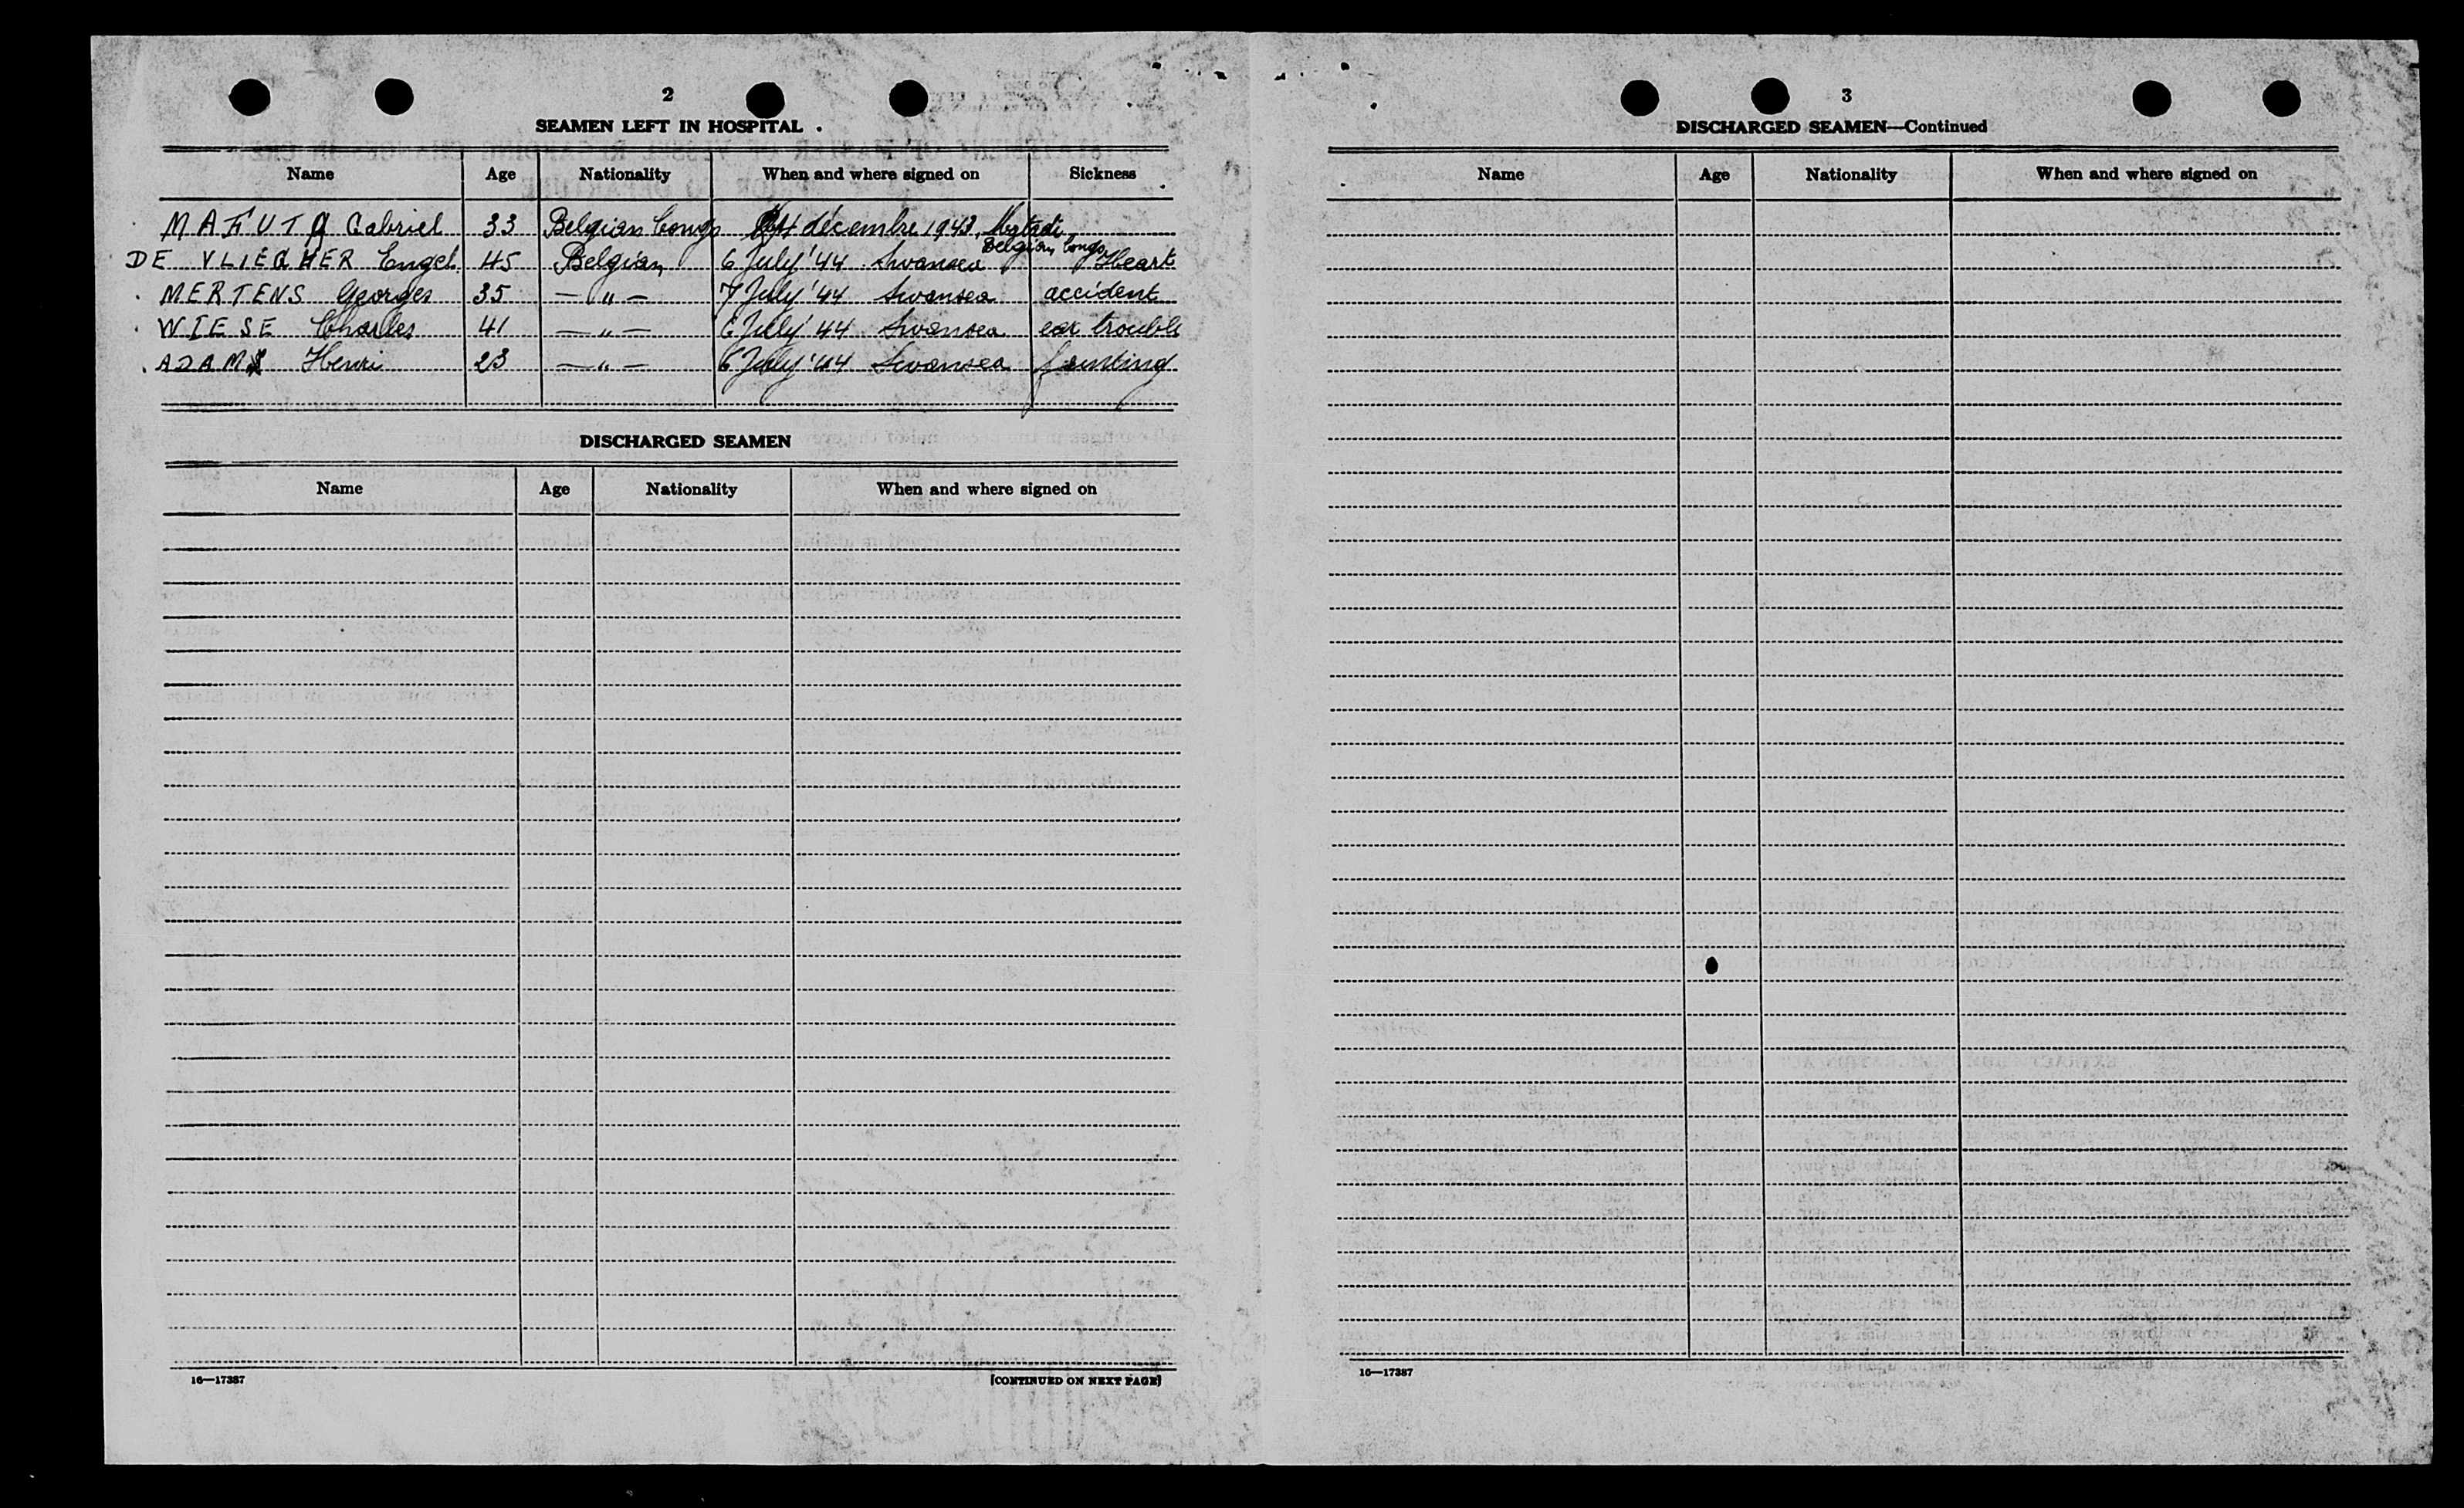 2
SEAMEN LEFT IN HOSPITAL
Name Age Nationality When and where signed on Sickness
Gabriel 33 Belgian Congo décembre 1943, Matadi
Belgian Congo
DE VLIEGHER Engel. 45 Belgian 6 July '44 Swansea Heart
MERTENS Georges 35 — " — 7 July '44 Swansea accident
WIESE Charles 41 — " — 6 July '44 Swansea ear trouble
ADAM Henri 23 — " — 6 July '44 Swansea
DISCHARGED SEAMEN
Name Age Nationality When and where signed on
16—17387 [CONTINUED ON NEXT PAGE]
3
DISCHARGED SEAMEN—Continued
Name Age Nationality When and where signed on
16—17387